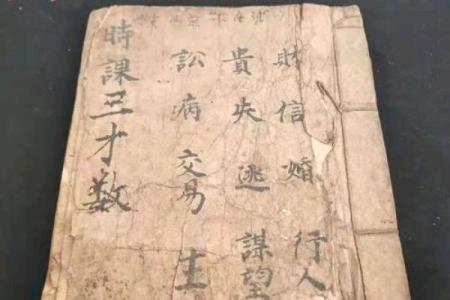 財信婚行人
貴失逃謀望
訟病交易生
時課三才数